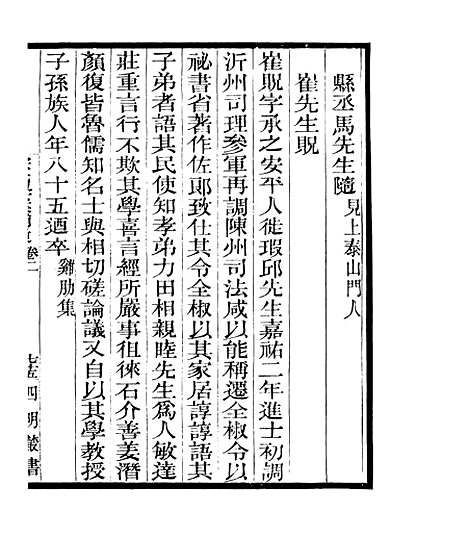 縣丞馬先生隨見上泰山門人
崔先生貺
崔貺字承之安平人徙瑕邱先生嘉祐二年進士初調
沂州司理參軍再調陳州司法咸以能稱遷全椒令以
祕書省著作佐郎致仕其令全椒以其家居諄諄語其
子弟者語其民使知孝弟力田相親睦先生爲人敏達
莊重言行不欺其學喜言經所嚴事徂徠石介善姜潛
顏復皆魯儒知名士與相切磋論議又自以其學教授
子孫族人年八十五迺卒雞肋集
卷二
四明叢書